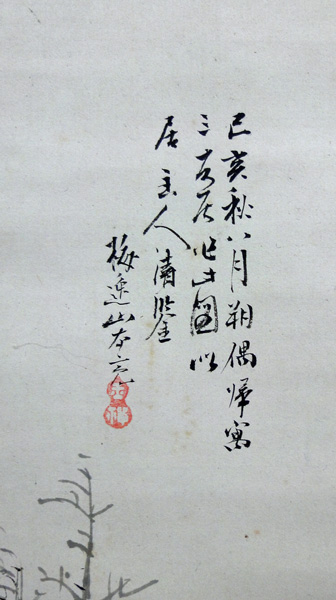 己亥秋八月朔偶帰寓
三友居作此圖以
居主人清鑒
梅逸山本亮